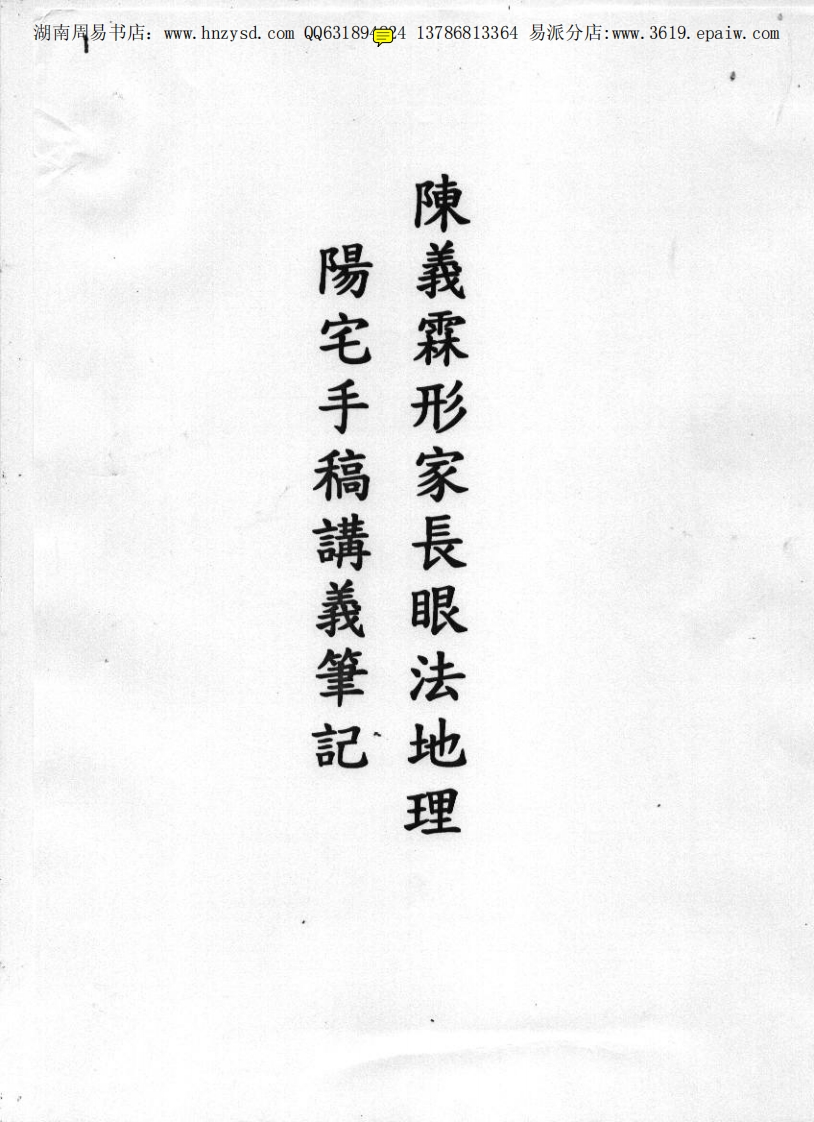 湖南周易书店：www.hnzysd.com QQ631894 24 13786813364 易派分店:www.3619.epaiw.com
陳義霖形家長眼法地理
陽宅手稿講義筆記